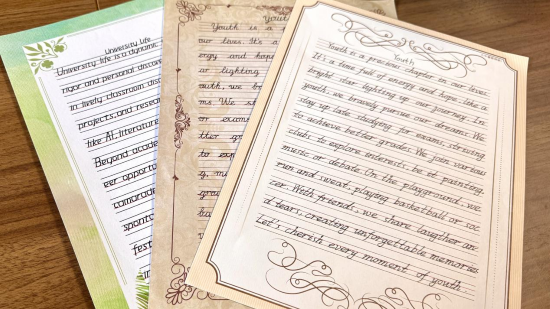 University Life
University life is a dynamic
rigor and personal discov
in lively classroom dis
projects, and resear
like AI, literature
Beyond acade
eer opportun
camarade
sponta
fest
in
Youth
Youth is a
our lives. It's a
ergy and hope
ar lighting
outh, we br
ms. We s
or exam
tter g
to exp
g, m
grou
bas
Youth
Youth is a precious chapter in our lives.
It's a time full of energy and hope, like a
bright star lighting up our journey. In
youth, we bravely pursue our dreams. We
stay up late studying for exams, striving
to achieve better grades. We join various
clubs to explore interests, be it painting,
music or debate. On the playground, we
run and sweat, playing basketball or soc
cer. With friends, we share laugther an
d tears, creating unforgettable memories.
Let's cherish every moment of youth